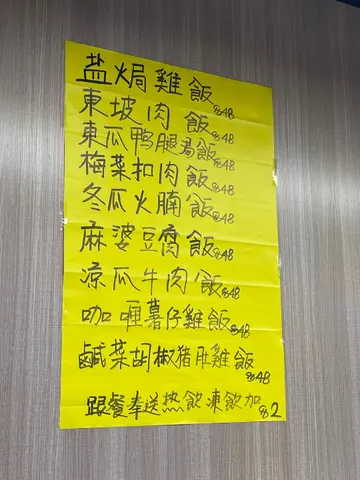 盐焗雞飯$48
東坡肉飯$48
東瓜鸭腿湯飯$48
梅菜扣肉飯$48
冬瓜火腩飯$48
麻婆豆腐飯$48
凉瓜牛肉飯$48
咖喱薯仔雞飯$48
鹹菜胡椒猪肚雞飯$48
跟餐奉送热飲凍飲加$2